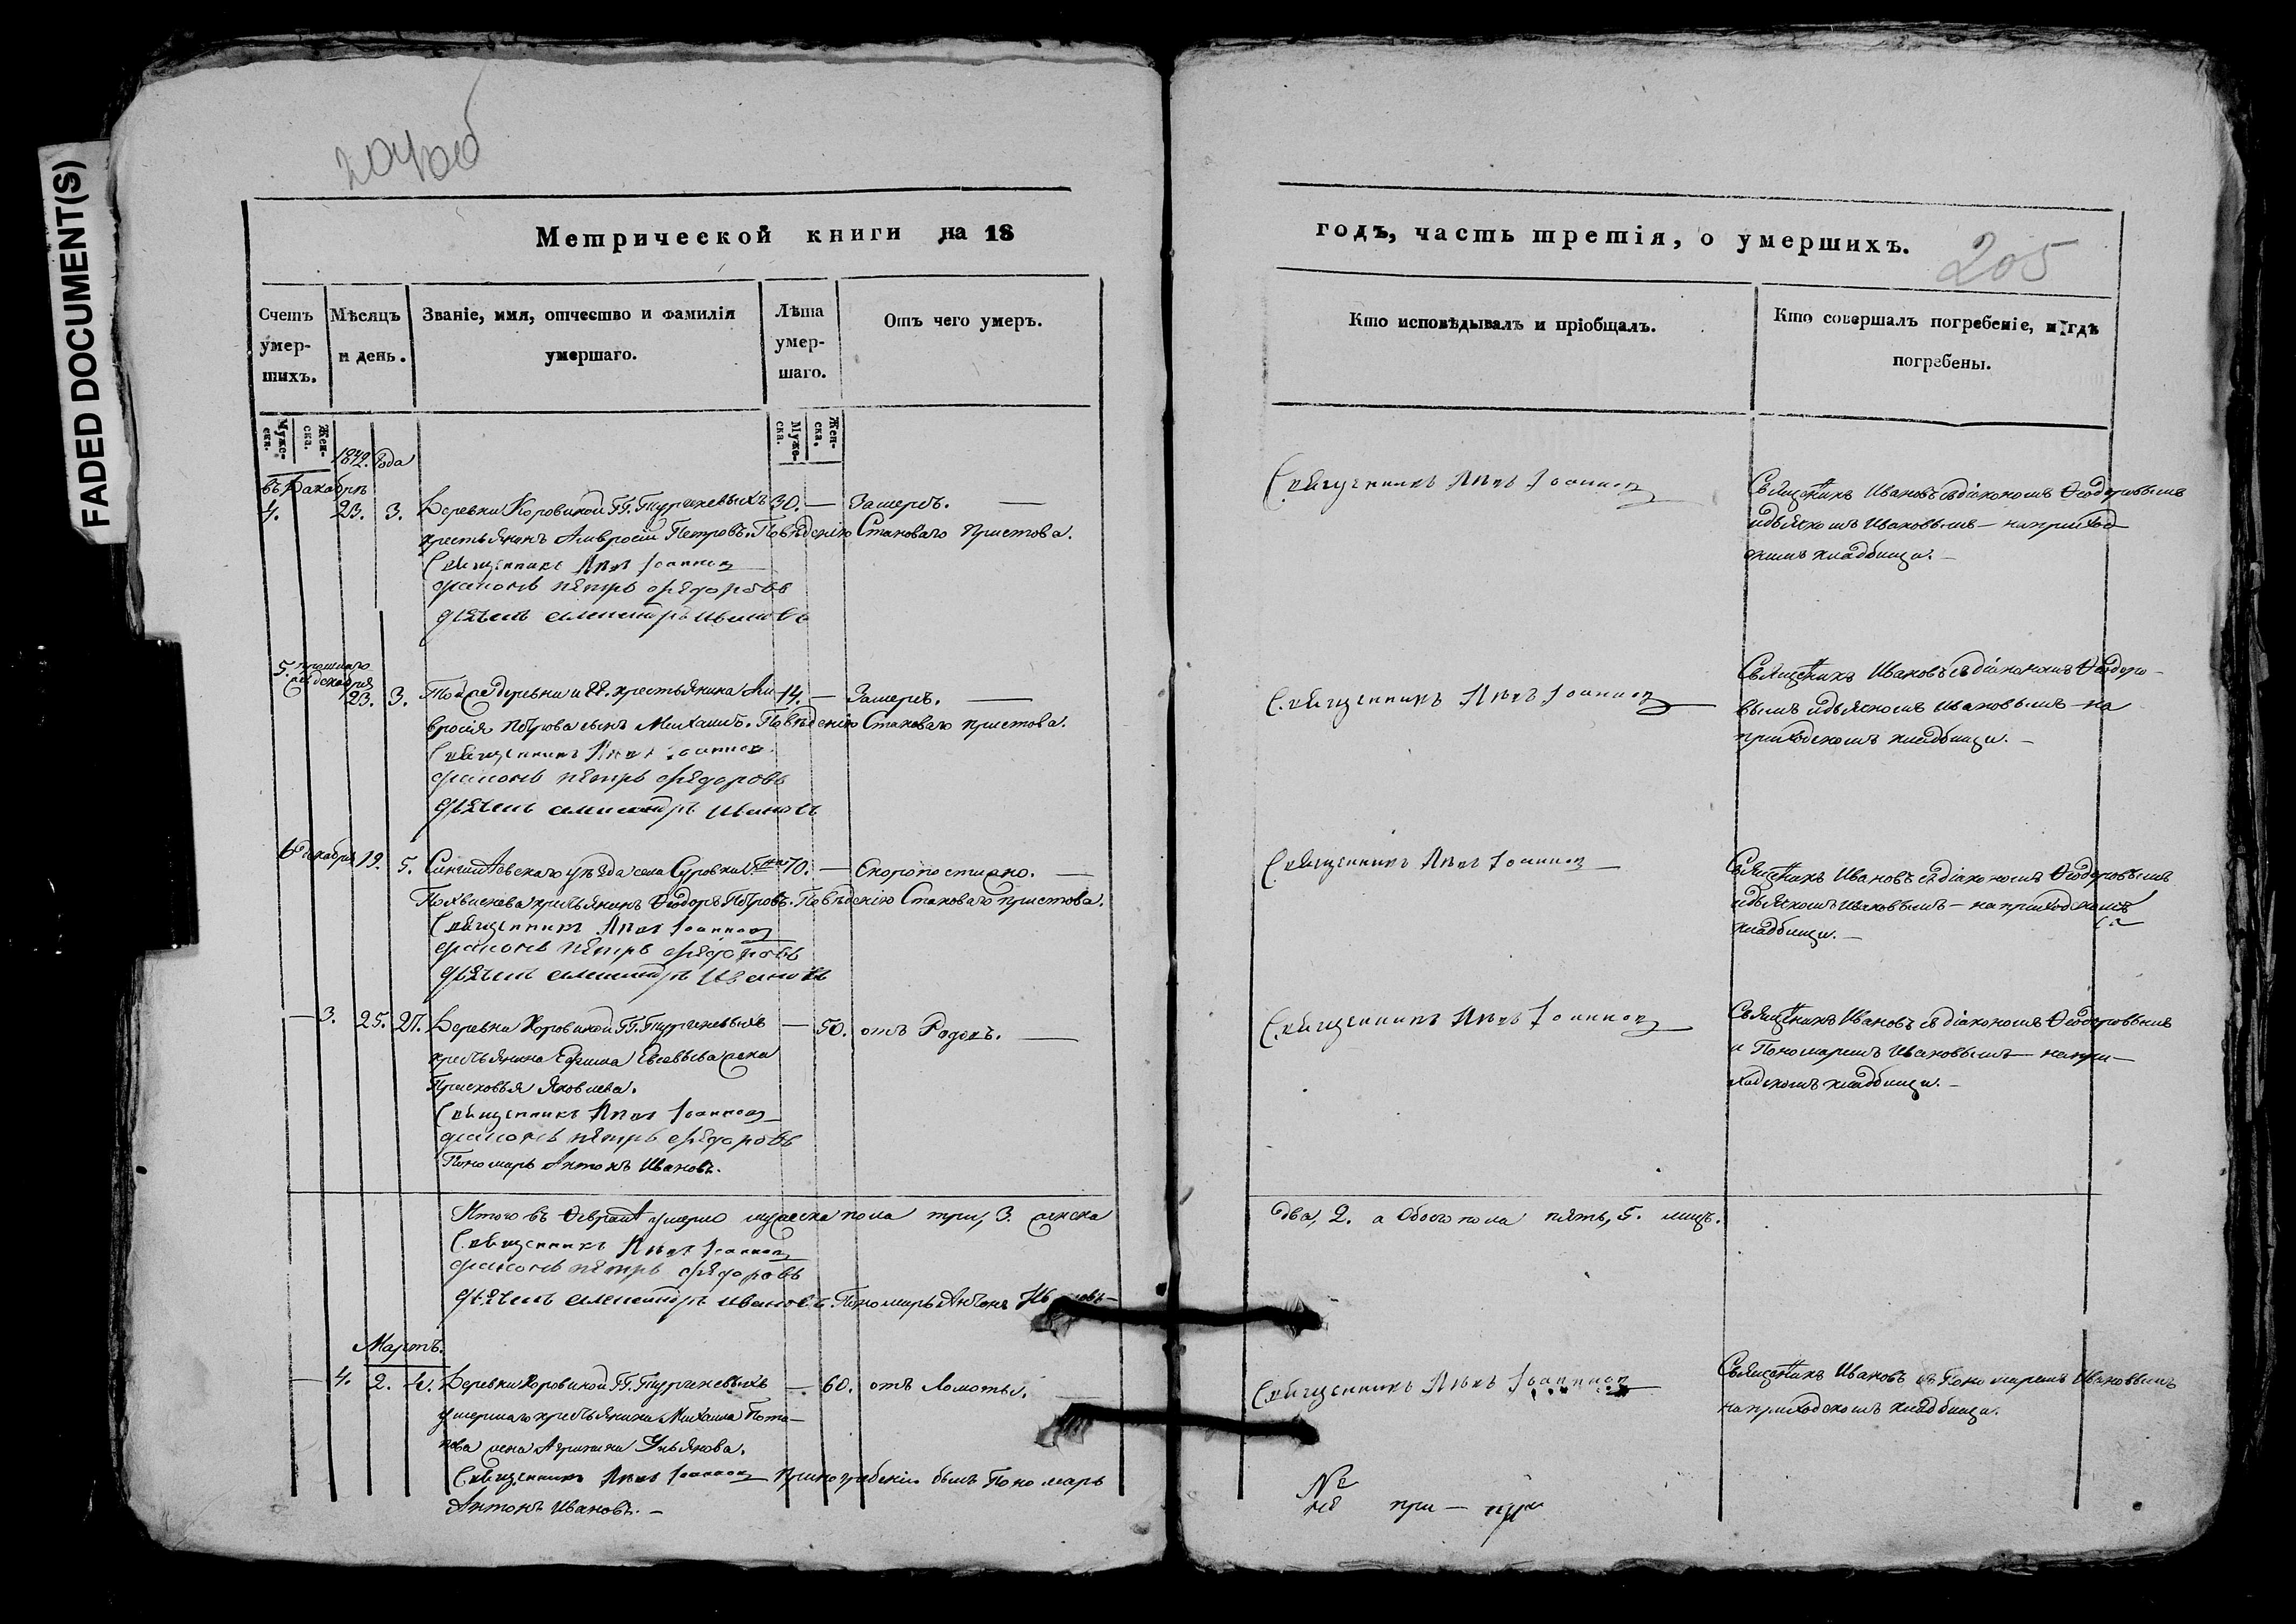 FADED DOCUMENT(S)
204об
Метрической книги на 18
Счетъ умер-шихъ.
Мѣсяцъ и день.
Званіе, имя, отчество и фамилія умершаго.
Лѣта умер-шаго.
Отъ чего умеръ.
Муже-ска.
Жен-ска.
Муже-ска.
Жен-ска.
1842. Года
въ Декабрѣ
4. 23. 3. Деревни Коровиной ГГ. Тургеневыхъ 30. — Замерзъ. —
крестьянинъ Амвросій Петровъ. По вѣденію Становаго Пристова.
Священникъ Іоанновъ
диаконъ петръ федоровъ
дьячекъ александръ ивановъ
5. прошлаго декабря
23. 3. Той же деревни и гг. крестьянина Ам- 14. — Замерзъ. —
вросія Петрова сынъ Михаилъ. По вѣденію Становаго пристова.
Священникъ Іоанновъ
диаконъ петръ федоровъ
дьячекъ александръ ивановъ
6 декабря 19. 5. Сингилѣевскаго уѣзда села Суровки 70. — Скоропостижно. —
крестьянинъ Ѳеодоръ Петровъ. По вѣденію Становаго пристова.
Священникъ Іоанновъ
диаконъ петръ федоровъ
дьячекъ александръ ивановъ
— 3. 25. 27. Деревни Коровиной ГГ. Тургеневыхъ — 50. отъ Родовъ. —
крестьянина Ефима жена
Прасковья Яковлева.
Священникъ Іоанновъ
диаконъ петръ федоровъ
Пономарь Антонъ Ивановъ.
Итого въ Февралѣ умерло мужеска пола три, 3. женска
Священникъ Іоанновъ
диаконъ петръ федоровъ
дьячекъ александръ ивановъ. Пономарь Антонъ Ивановъ
Мартъ.
— 4. 2. 4. Деревни Коровиной ГГ. Тургеневыхъ — 60. отъ Ломоты. —
умершаго крестьянина Михаила Пота-
пова жена Агрипина Ульянова.
Священникъ Іоанновъ при погребеніи былъ Пономарь
Антонъ Ивановъ. —
годъ, часть третія, о умершихъ.
205
Кто исповѣдывалъ и пріобщалъ.
Кто совершалъ погребеніе, и гдѣ погребены.
Священникъ Іоанновъ
Священникъ Ивановъ съ діакономъ Ѳеодоровымъ
и дьячкомъ Ивановымъ — на приход-
скомъ кладбищѣ. —
Священникъ Іоанновъ
Священникъ Ивановъ съ діакономъ Ѳеодоро-
вымъ и дьячкомъ Ивановымъ — на
приходскомъ кладбищѣ. —
Священникъ Іоанновъ
Священникъ Ивановъ съ діакономъ Ѳеодоровымъ
и дьячкомъ Ивановымъ — на приходскомъ
кладбищѣ. —
Священникъ Іоанновъ
Священникъ Ивановъ съ діакономъ Ѳеодоровымъ
и Пономаремъ Ивановымъ — на при-
ходскомъ кладбищѣ. —
два, 2. а Обоего пола пять, 5. лицъ.
Священникъ Іоанновъ
Священникъ Ивановъ съ Пономаремъ Ивановымъ
на приходскомъ кладбищѣ.
№
при —